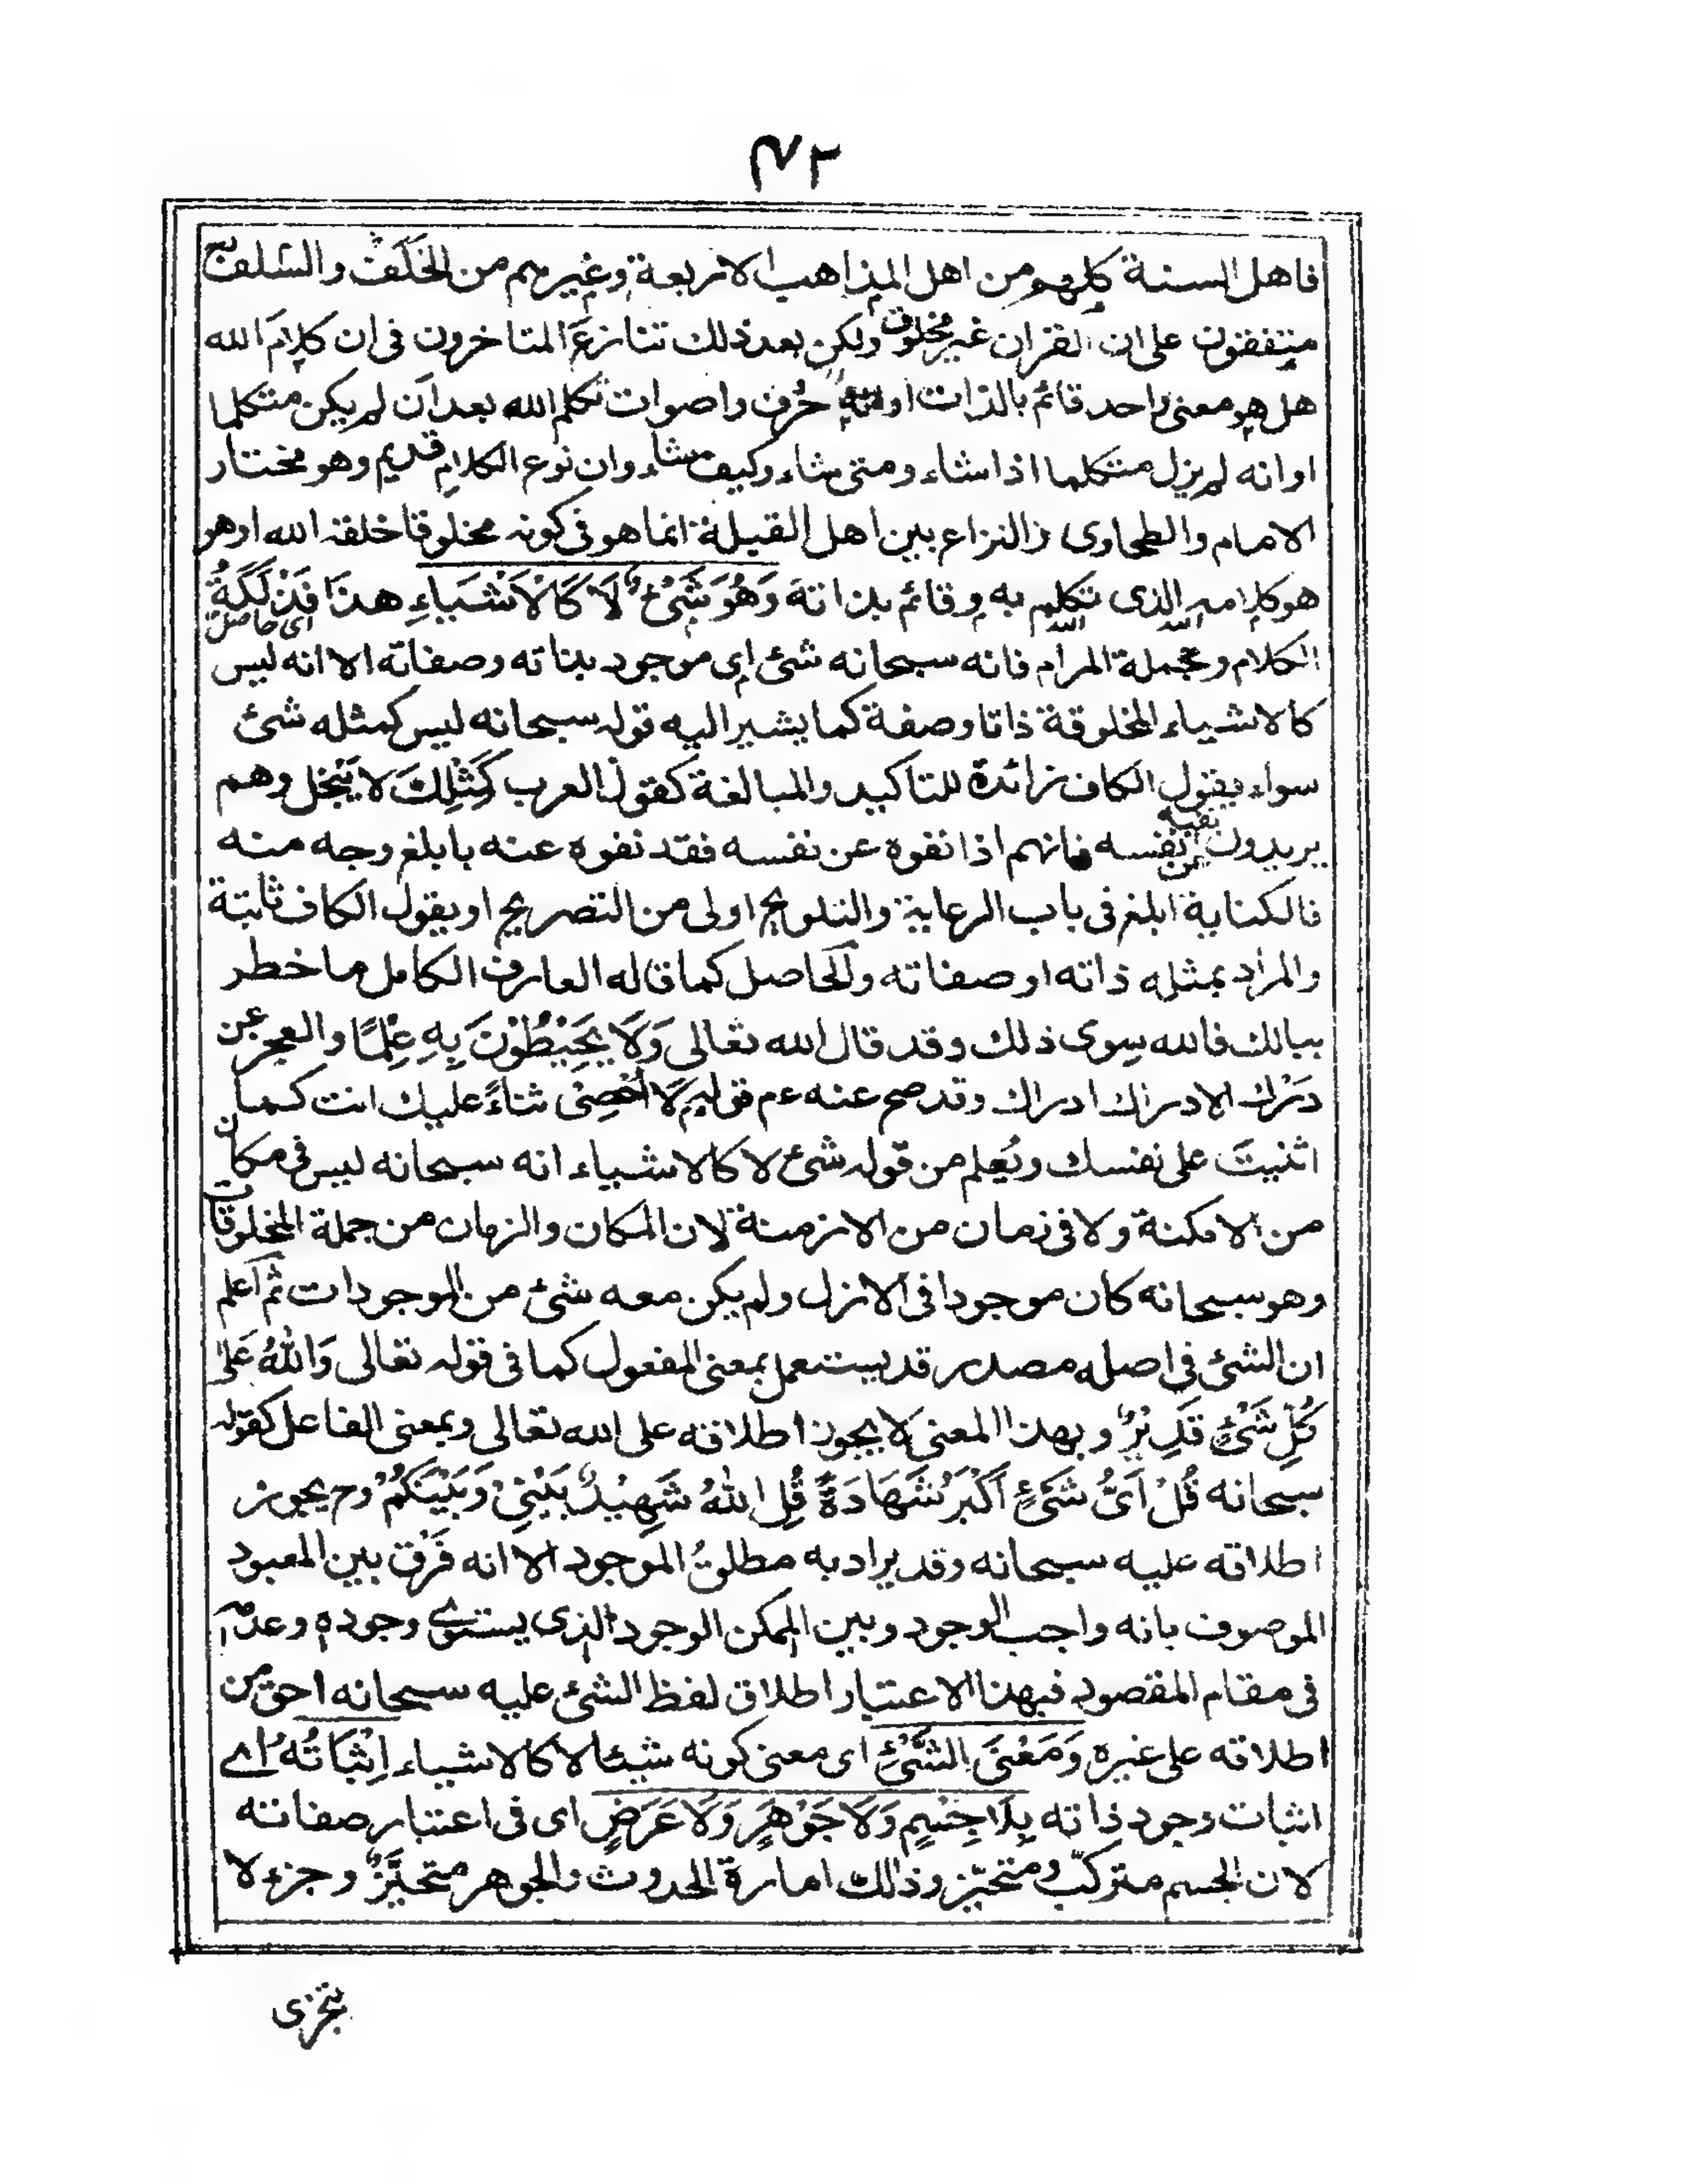 ٤٢
فاهل السنة كلهم من اهل المذاهب الاربعة وغيرهم من الخَلَف والسلف
متفقون على ان القران غير مخلوق ولكن بعد ذلك تنازعَ المتاخرون فى ان كلامَ الله
هل هو معنى واحد قائم بالذات او انه حُرف واصوات تكلم الله بعد ان لم يكن متكلما
او انه لم يزل متكلما اذا شاء ومتى شاء وكيف شاء وان نوع الكلام قديم وهو مختار
الامام والطحاوى والنزاع بين اهل القبلة انما هو فى كونه مخلوقا خلقه الله او هو
هو كلامه الذى تكلم به وقائم بذاته وَهُوَ شَىْءٌ لَا كَالْاَشْيَاءِ هذا فَذْلَكَةُ
اى حاصل
الكلام ومجملة المرام فانه سبحانه شئ اى موجود بذاته وصفاته الا انه ليس
كالاشياء المخلوقة ذاتا وصفة كما يشير اليه قوله سبحانه ليس كمثله شئ
سواء يقول الكاف زائدة للتاكيد والمبالغة كقول العرب كَمِثْلِكَ لا يَبْخل وهم
يريدون نفيه عن نفسه فانهم اذا نفوه عن نفسه فقد نفوه عنه بابلغ وجه منه
فالكناية ابلغ فى باب الرعاية والتلويح اولى من التصريح او يقول الكاف ثابتة
والمراد بمثله ذاته او صفاته والحاصل كما قاله العارف الكامل ما خطر
ببالك فالله سوى ذلك وقد قال الله تعالى وَلَا يُحِيْطُوْنَ بِهِ عِلْمًا والعجز عن
دَرْك الادراك ادراك وقد صح عنه عم قوله لَا اُحْصِىْ ثناءً عليك انت كما
اثنيتَ على نفسك ويُعلم من قوله شئ لا كالاشياء انه سبحانه ليس فى مكان
من الامكنة ولا فى زمان من الازمنة لان المكان والزمان من جملة المخلوقات
وهو سبحانه كان موجودا فى الازل ولم يكن معه شئ من الموجودات ثم اعلم
ان الشئ فى اصله مصدر قد يستعمل بمعنى المفعول كما فى قوله تعالى وَاللهُ عَلىٰ
كُلِّ شَىْءٍ قَدِيْرٌ وبهذا المعنى لا يجوز اطلاقه على الله تعالى وبمعنى الفاعل كقوله
سبحانه قُلْ اَىُّ شَىْءٍ اَكْبَرُ شَهَادَةً قُلِ اللهُ شَهِيْدٌ بَيْنِىْ وَبَيْنَكُمْ وح يجوز
اطلاقه عليه سبحانه وقد يراد به مطلقُ الموجود الا انه فَرْق بين المعبود
الموصوف بانه واجب الوجود وبين الممكن الوجود الذى يستوى وجوده وعدمه
فى مقام المقصود فبهذا الاعتبار اطلاق لفظ الشئ عليه سبحانه احق من
اطلاقه على غيره وَمَعْنَى الشَّىْءِ اى معنى كونه شيئا لا كالاشياء اِثْبَاتُهُ اى
اثبات وجود ذاته بِلَا جِسْمٍ وَلَا جَوْهَرٍ وَلَا عَرَضٍ اى فى اعتبار صفاته
لان الجسم متركّب ومتحيّز وذلك امارة الحدوث والجوهر متحيَّزٌ وجزء لا
يتجزى